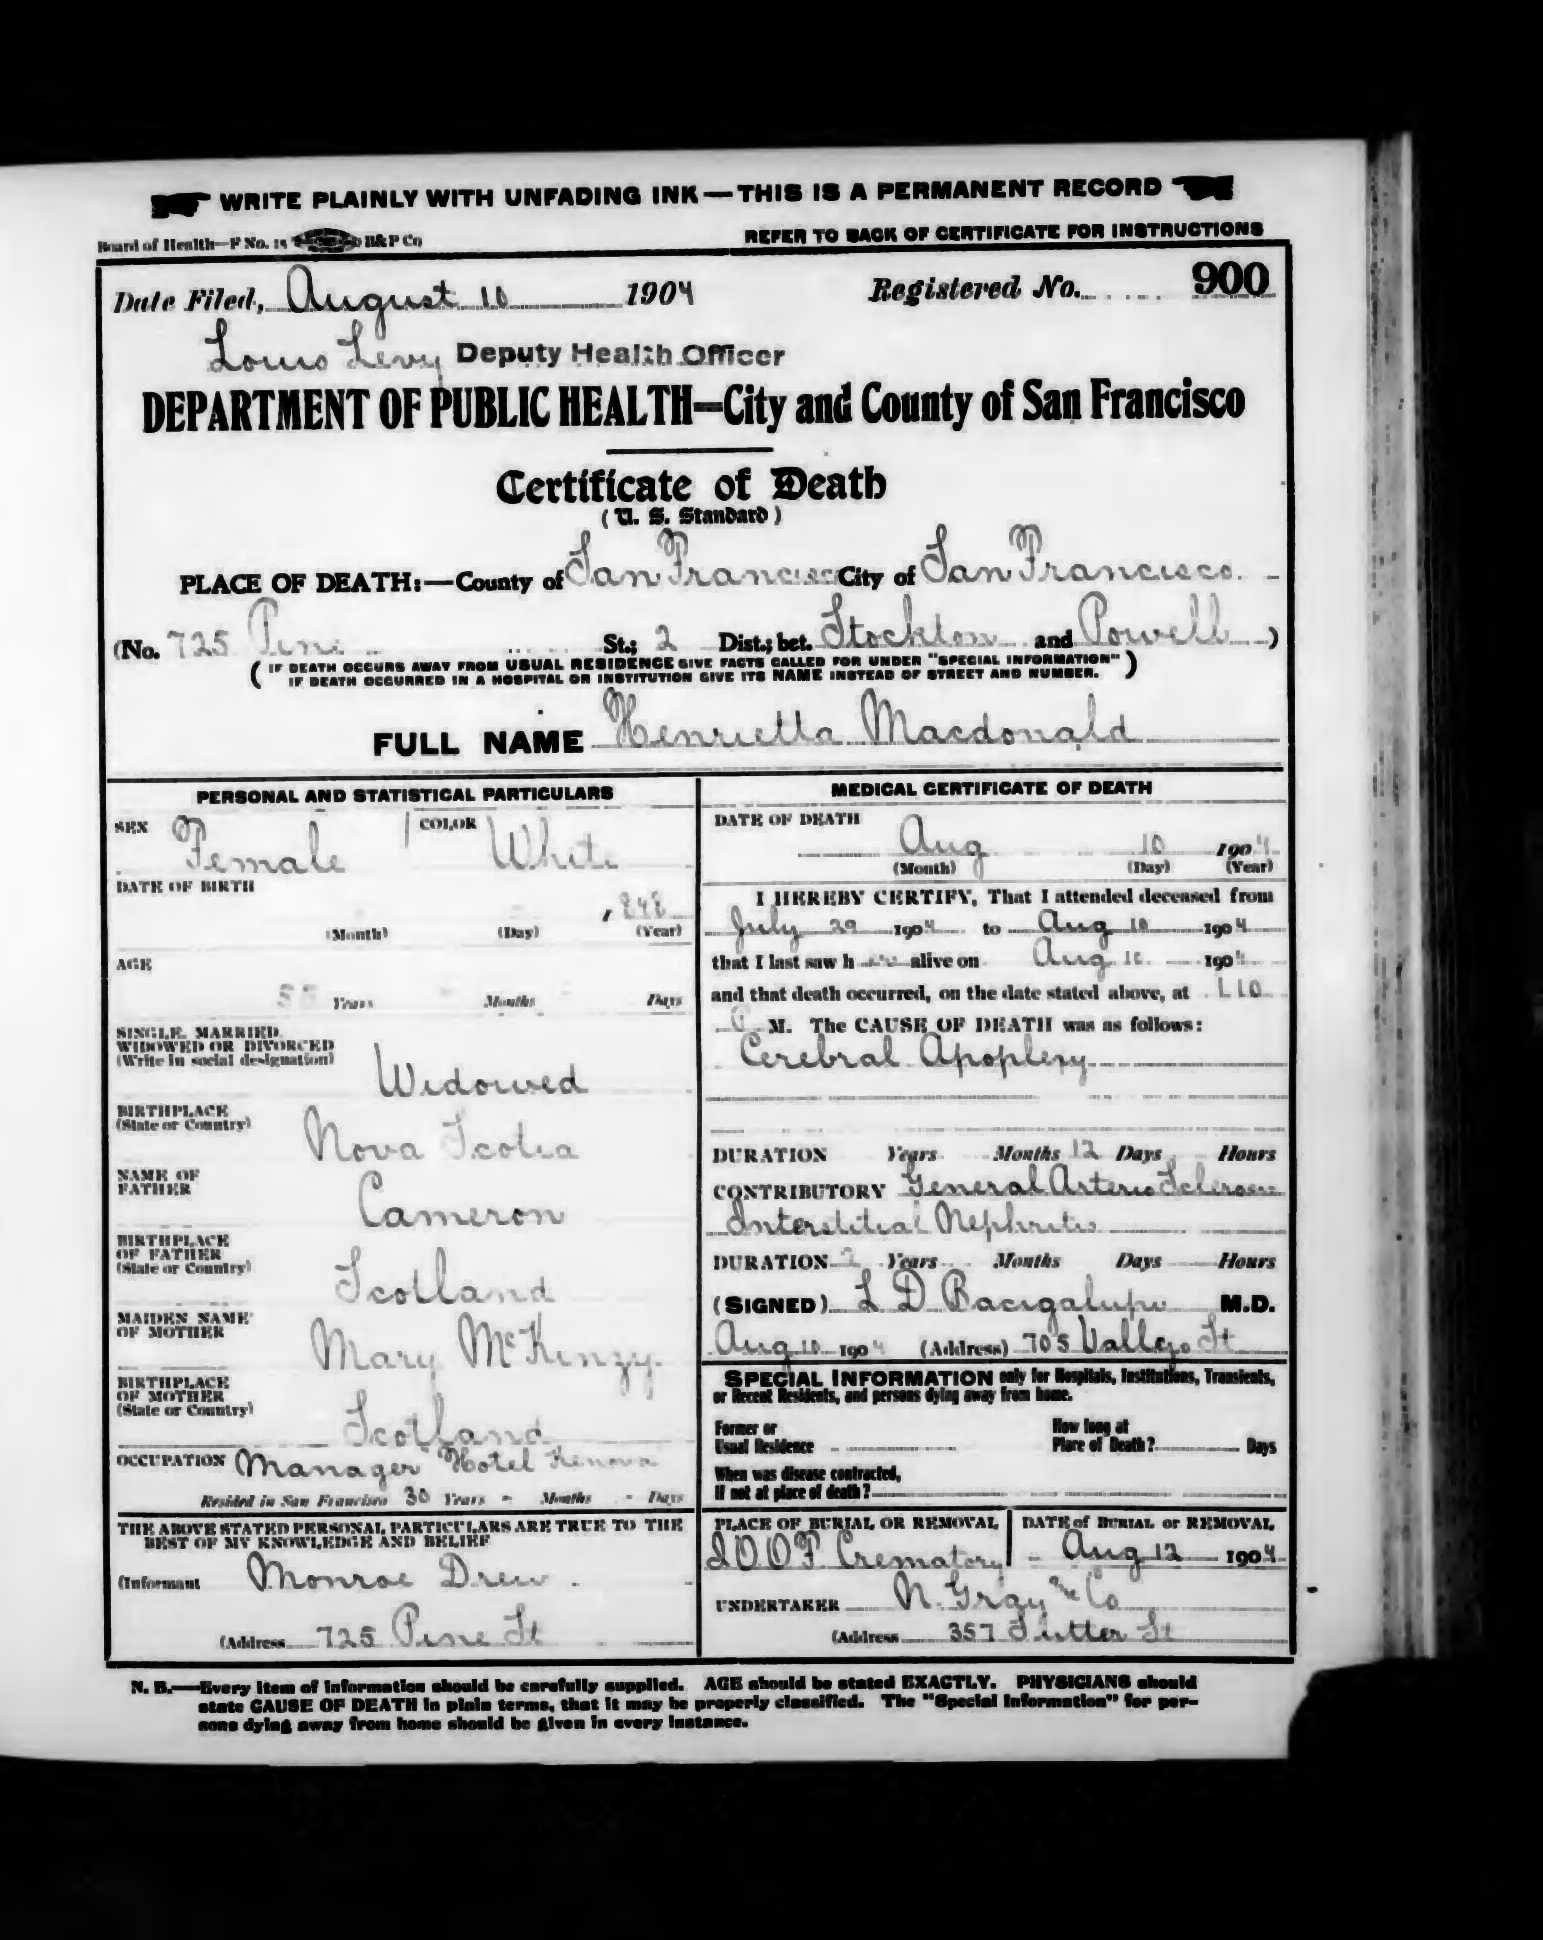 WRITE PLAINLY WITH UNFADING INK—THIS IS A PERMANENT RECORD
Board of Health—F No. 15 B&P Co
REFER TO BACK OF CERTIFICATE FOR INSTRUCTIONS
Date Filed, August 10 1904 Registered No. 900
Louis Levy Deputy Health Officer
DEPARTMENT OF PUBLIC HEALTH—City and County of San Francisco
Certificate of Death
(U. S. Standard)
PLACE OF DEATH:—County of San Francisco City of San Francisco
(No. 725 Pine St.; 2 Dist.; bet. Stockton and Powell)
(IF DEATH OCCURS AWAY FROM USUAL RESIDENCE GIVE FACTS CALLED FOR UNDER "SPECIAL INFORMATION"
IF DEATH OCCURRED IN A HOSPITAL OR INSTITUTION GIVE ITS NAME INSTEAD OF STREET AND NUMBER.)
FULL NAME Henrietta Macdonald
PERSONAL AND STATISTICAL PARTICULARS
SEX Female COLOR White
DATE OF BIRTH
, 848
(Month) (Day) (Year)
AGE
Years Months Days
SINGLE, MARRIED,
WIDOWED OR DIVORCED
(Write in social designation)
Widowed
BIRTHPLACE
(State or Country)
Nova Scotia
NAME OF
FATHER
Cameron
BIRTHPLACE
OF FATHER
(State or Country)
Scotland
MAIDEN NAME
OF MOTHER
Mary McKinzy
BIRTHPLACE
OF MOTHER
(State or Country)
Scotland
OCCUPATION Manager Hotel Kenova
Resided in San Francisco 30 Years - Months - Days
THE ABOVE STATED PERSONAL PARTICULARS ARE TRUE TO THE
BEST OF MY KNOWLEDGE AND BELIEF
(Informant Monroe Drew
(Address 725 Pine St
MEDICAL CERTIFICATE OF DEATH
DATE OF DEATH
Aug 10 1904
(Month) (Day) (Year)
I HEREBY CERTIFY, That I attended deceased from
July 29 1904 to Aug 10 1904
that I last saw her alive on Aug 10 1904
and that death occurred, on the date stated above, at 1.10
M. The CAUSE OF DEATH was as follows:
Cerebral Apoplexy
DURATION Years Months 12 Days Hours
CONTRIBUTORY General Arterio Sclerosis
Interstitial Nephritis
DURATION 2 Years Months Days Hours
(SIGNED) L D Bacigalupi M.D.
Aug 10 1904 (Address) 705 Vallejo St
SPECIAL INFORMATION only for Hospitals, Institutions, Transients,
or Recent Residents, and persons dying away from home.
Former or
Usual Residence
How long at
Place of Death? Days
When was disease contracted,
If not at place of death?
PLACE OF BURIAL OR REMOVAL
IOOF Crematory
DATE of BURIAL or REMOVAL
Aug 12 1904
UNDERTAKER N. Gray & Co
(Address 357 Sutter St
N. B.—Every item of information should be carefully supplied. AGE should be stated EXACTLY. PHYSICIANS should
state CAUSE OF DEATH in plain terms, that it may be properly classified. The "Special Information" for per-
sons dying away from home should be given in every instance.